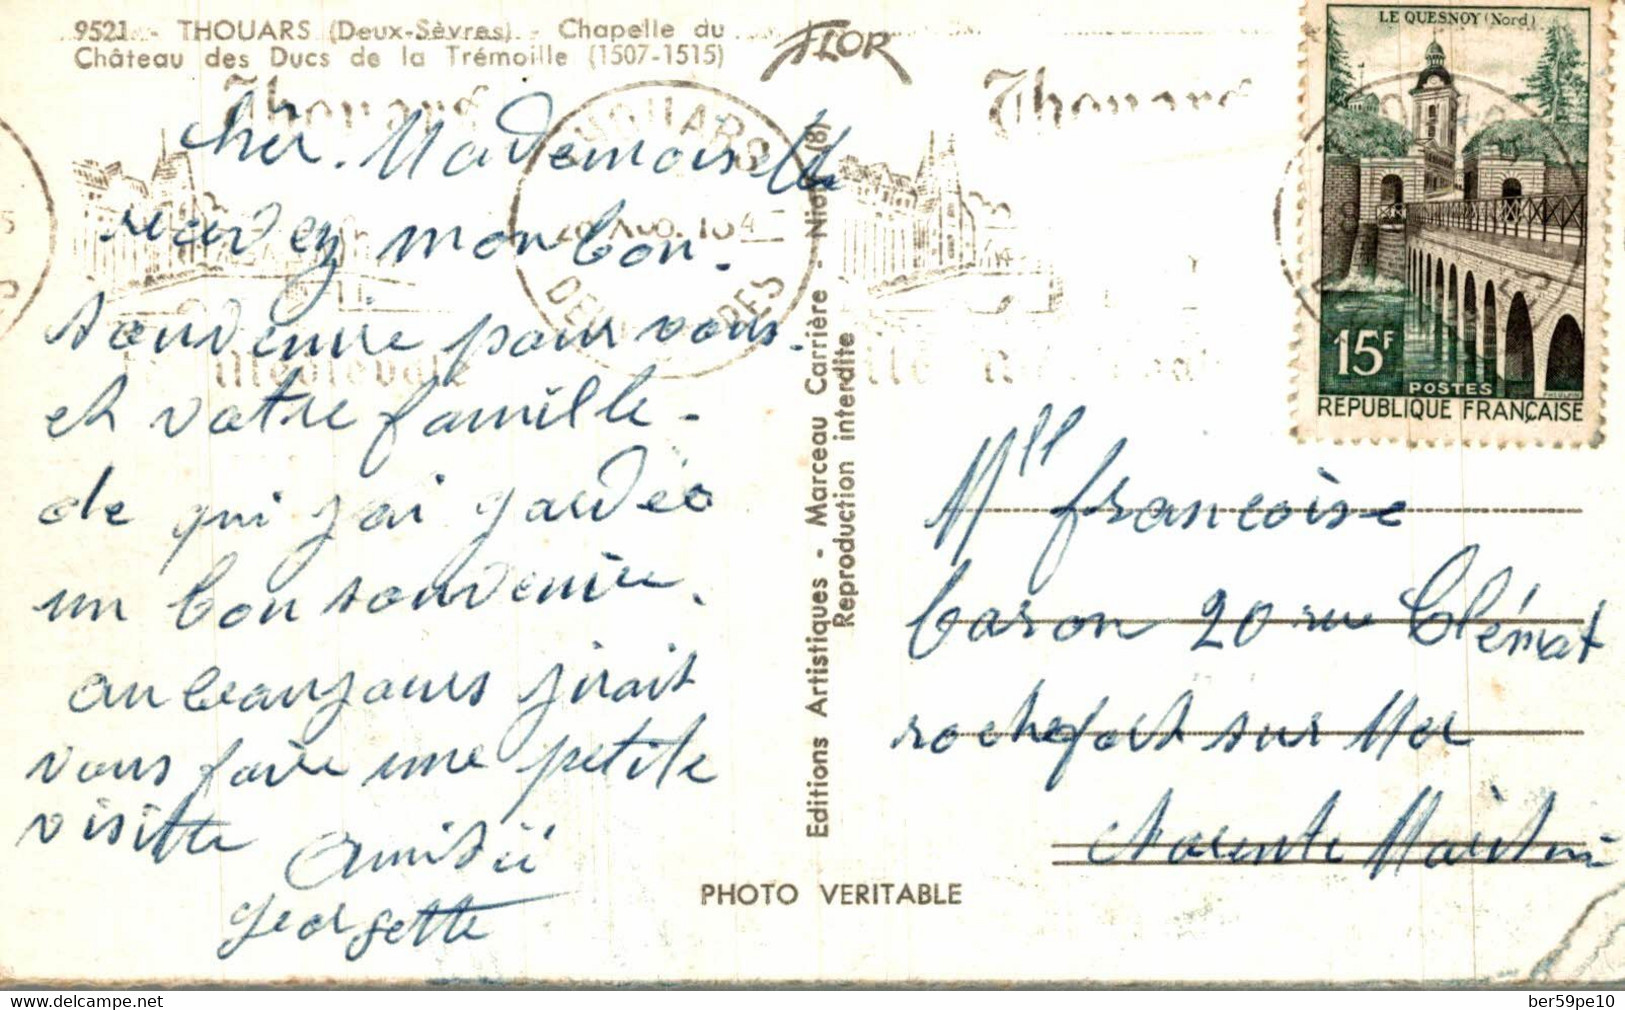 9521 - THOUARS (Deux-Sèvres) - Chapelle du
Château des Ducs de la Trémoille (1507-1515)
FLOR
Thouars
Thouars
THOUARS
DEUX SEVRES
Cher. Mademoiselle
recevez mon bon.
souvenire pour vous.
et votre famille.
de qui j'ai gardée
un bon souvenire.
un beau jours j'irait
vous faire une petite
visitte
Amitiè
Georgette
Editions Artistiques - Marceau Carrière - Niort (8)
Reproduction interdite
PHOTO VERITABLE
LE QUESNOY (Nord)
15F
POSTES
REPUBLIQUE FRANÇAISE
Mll françoise
baron 20 rue Clémat
rochefort sur Mer
Charente Maritime
ber59pe10